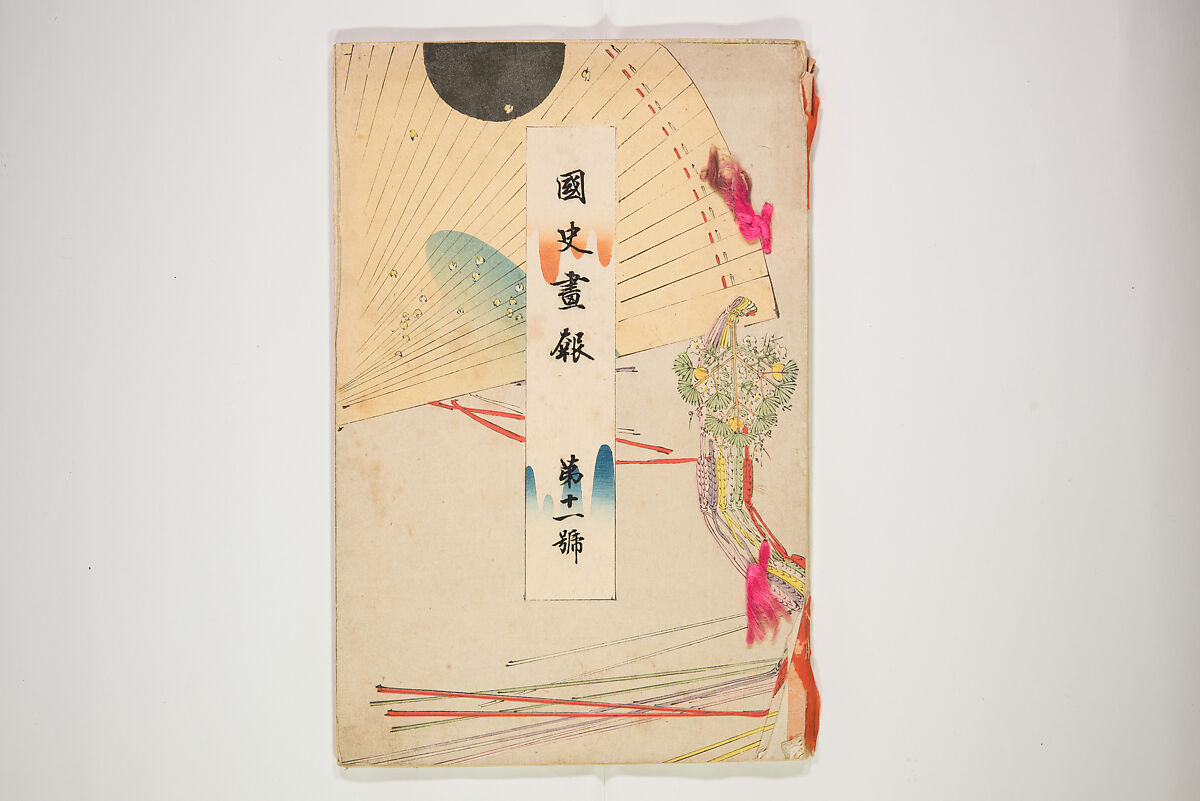 國史畫報 第十一號